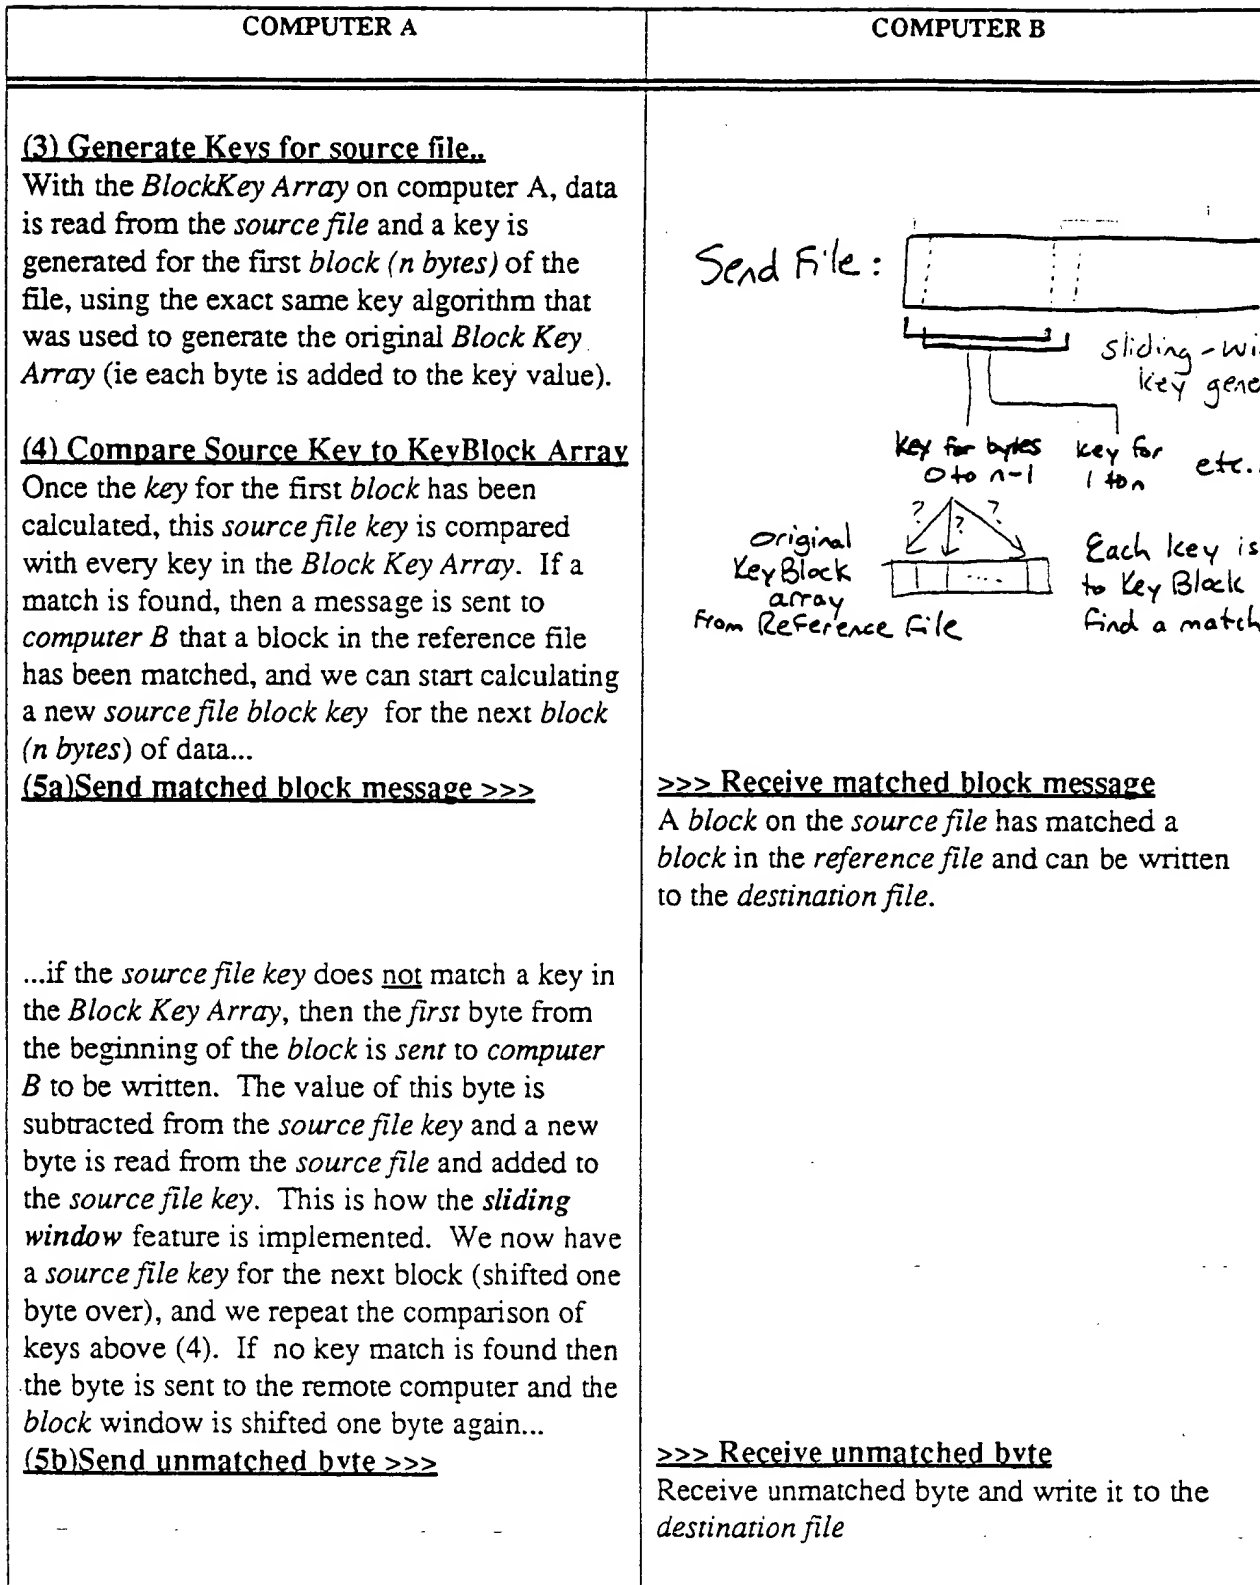 COMPUTER A
COMPUTER B
(3) Generate Keys for source file..
With the BlockKey Array on computer A, data
is read from the source file and a key is
generated for the first block (n bytes) of the
file, using the exact same key algorithm that
was used to generate the original Block Key
Array (ie each byte is added to the key value).
(4) Compare Source Key to KeyBlock Array
Once the key for the first block has been
calculated, this source file key is compared
with every key in the Block Key Array. If a
match is found, then a message is sent to
computer B that a block in the reference file
has been matched, and we can start calculating
a new source file block key for the next block
(n bytes) of data...
(5a)Send matched block message >>>
...if the source file key does not match a key in
the Block Key Array, then the first byte from
the beginning of the block is sent to computer
B to be written. The value of this byte is
subtracted from the source file key and a new
byte is read from the source file and added to
the source file key. This is how the sliding
window feature is implemented. We now have
a source file key for the next block (shifted one
byte over), and we repeat the comparison of
keys above (4). If no key match is found then
the byte is sent to the remote computer and the
block window is shifted one byte again...
(5b)Send unmatched byte >>>
Send File:
sliding-wi
key gene
key for bytes
0 to n-1
key for
1 to n
etc..
? ? ?
original
KeyBlock
array
From Reference File
....
Each key is
to Key Block
find a match
>>> Receive matched block message
A block on the source file has matched a
block in the reference file and can be written
to the destination file.
>>> Receive unmatched byte
Receive unmatched byte and write it to the
destination file